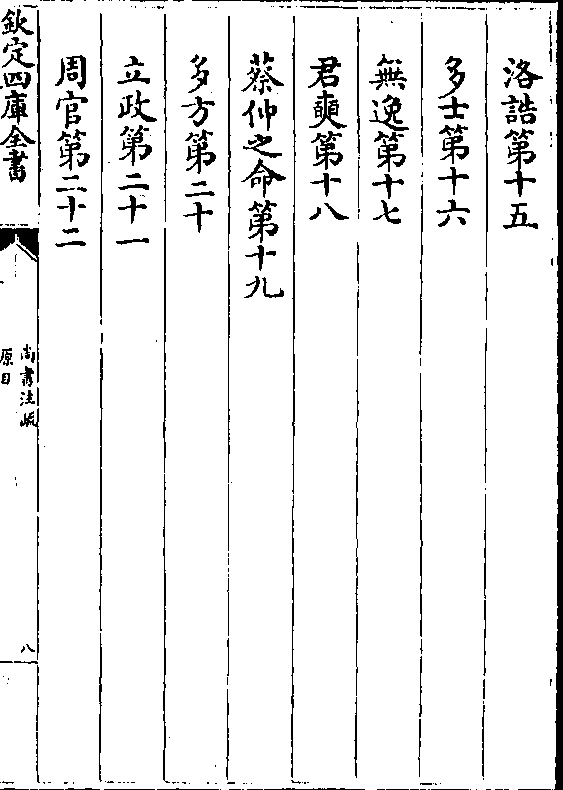 洛誥第十五
多士第十六
無逸第十七
君奭第十八
蔡仲之命第十九
多方第二十
立政第二十一
周官第二十二
欽定四庫全書
尚書注疏
原目
八